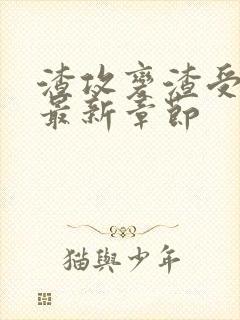 渣攻变渣受
最新章節
猫與少年